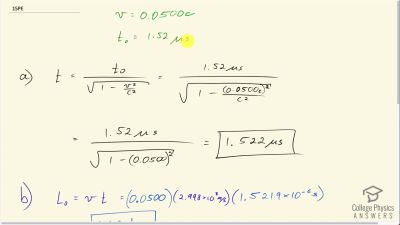 15PE
v = 0.0500c
t₀ = 1.52 μs
a) t = t₀ / √(1 - v²/c²) = 1.52 μs / √(1 - (0.0500c)²/c²)
= 1.52 μs / √(1-(0.0500)²) = 1.522 μs
b) L₀ = v t = (0.0500)(2.998×10⁸ m/s)(1.5219×10⁻⁶ s)
College Physics
ANSWERS